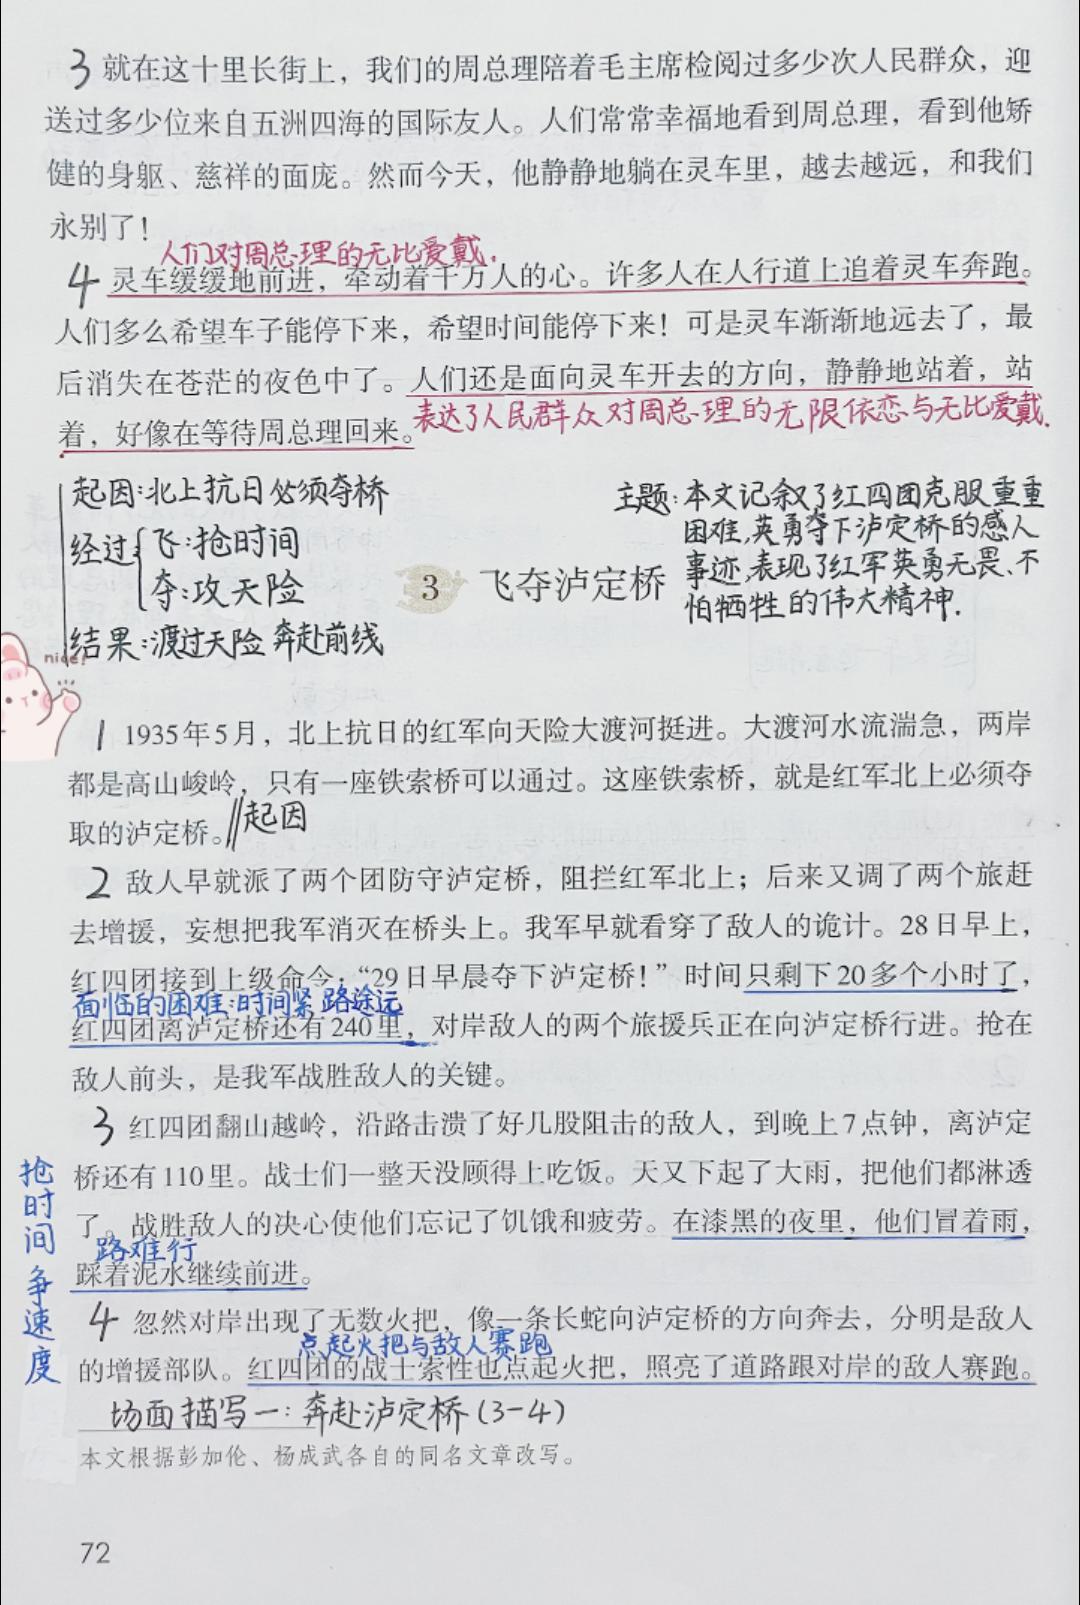 3 就在这十里长街上，我们的周总理陪着毛主席检阅过多少次人民群众，迎
送过多少位来自五洲四海的国际友人。人们常常幸福地看到周总理，看到他矫
健的身躯、慈祥的面庞。然而今天，他静静地躺在灵车里，越去越远，和我们
永别了！
人们对周总理的无比爱戴.
4 灵车缓缓地前进，牵动着千万人的心。许多人在人行道上追着灵车奔跑。
人们多么希望车子能停下来，希望时间能停下来！可是灵车渐渐地远去了，最
后消失在苍茫的夜色中了。人们还是面向灵车开去的方向，静静地站着，站
着，好像在等待周总理回来。
表达了人民群众对周总理的无限依恋与无比爱戴.
起因:北上抗日必须夺桥
经过{飞:抢时间
夺:攻天险
结果:渡过天险 奔赴前线
3 飞夺泸定桥
主题:本文记叙了红四团克服重重
困难,英勇夺下泸定桥的感人
事迹,表现了红军英勇无畏、不
怕牺牲的伟大精神.
nice!
1 1935年5月，北上抗日的红军向天险大渡河挺进。大渡河水流湍急，两岸
都是高山峻岭，只有一座铁索桥可以通过。这座铁索桥，就是红军北上必须夺
取的泸定桥。//起因
2 敌人早就派了两个团防守泸定桥，阻拦红军北上；后来又调了两个旅赶
去增援，妄想把我军消灭在桥头上。我军早就看穿了敌人的诡计。28日早上，
红四团接到上级命令：“29日早晨夺下泸定桥！”时间只剩下20多个小时了，
面临的困难:时间紧 路途远
红四团离泸定桥还有240里，对岸敌人的两个旅援兵正在向泸定桥行进。抢在
敌人前头，是我军战胜敌人的关键。
3 红四团翻山越岭，沿路击溃了好几股阻击的敌人，到晚上7点钟，离泸定
桥还有110里。战士们一整天没顾得上吃饭。天又下起了大雨，把他们都淋透
了。战胜敌人的决心使他们忘记了饥饿和疲劳。在漆黑的夜里，他们冒着雨，
路难行
踩着泥水继续前进。
抢时间争速度
4 忽然对岸出现了无数火把，像一条长蛇向泸定桥的方向奔去，分明是敌人
点起火把与敌人赛跑
的增援部队。红四团的战士索性也点起火把，照亮了道路跟对岸的敌人赛跑。
场面描写一:奔赴泸定桥(3-4)
本文根据彭加伦、杨成武各自的同名文章改写。
72